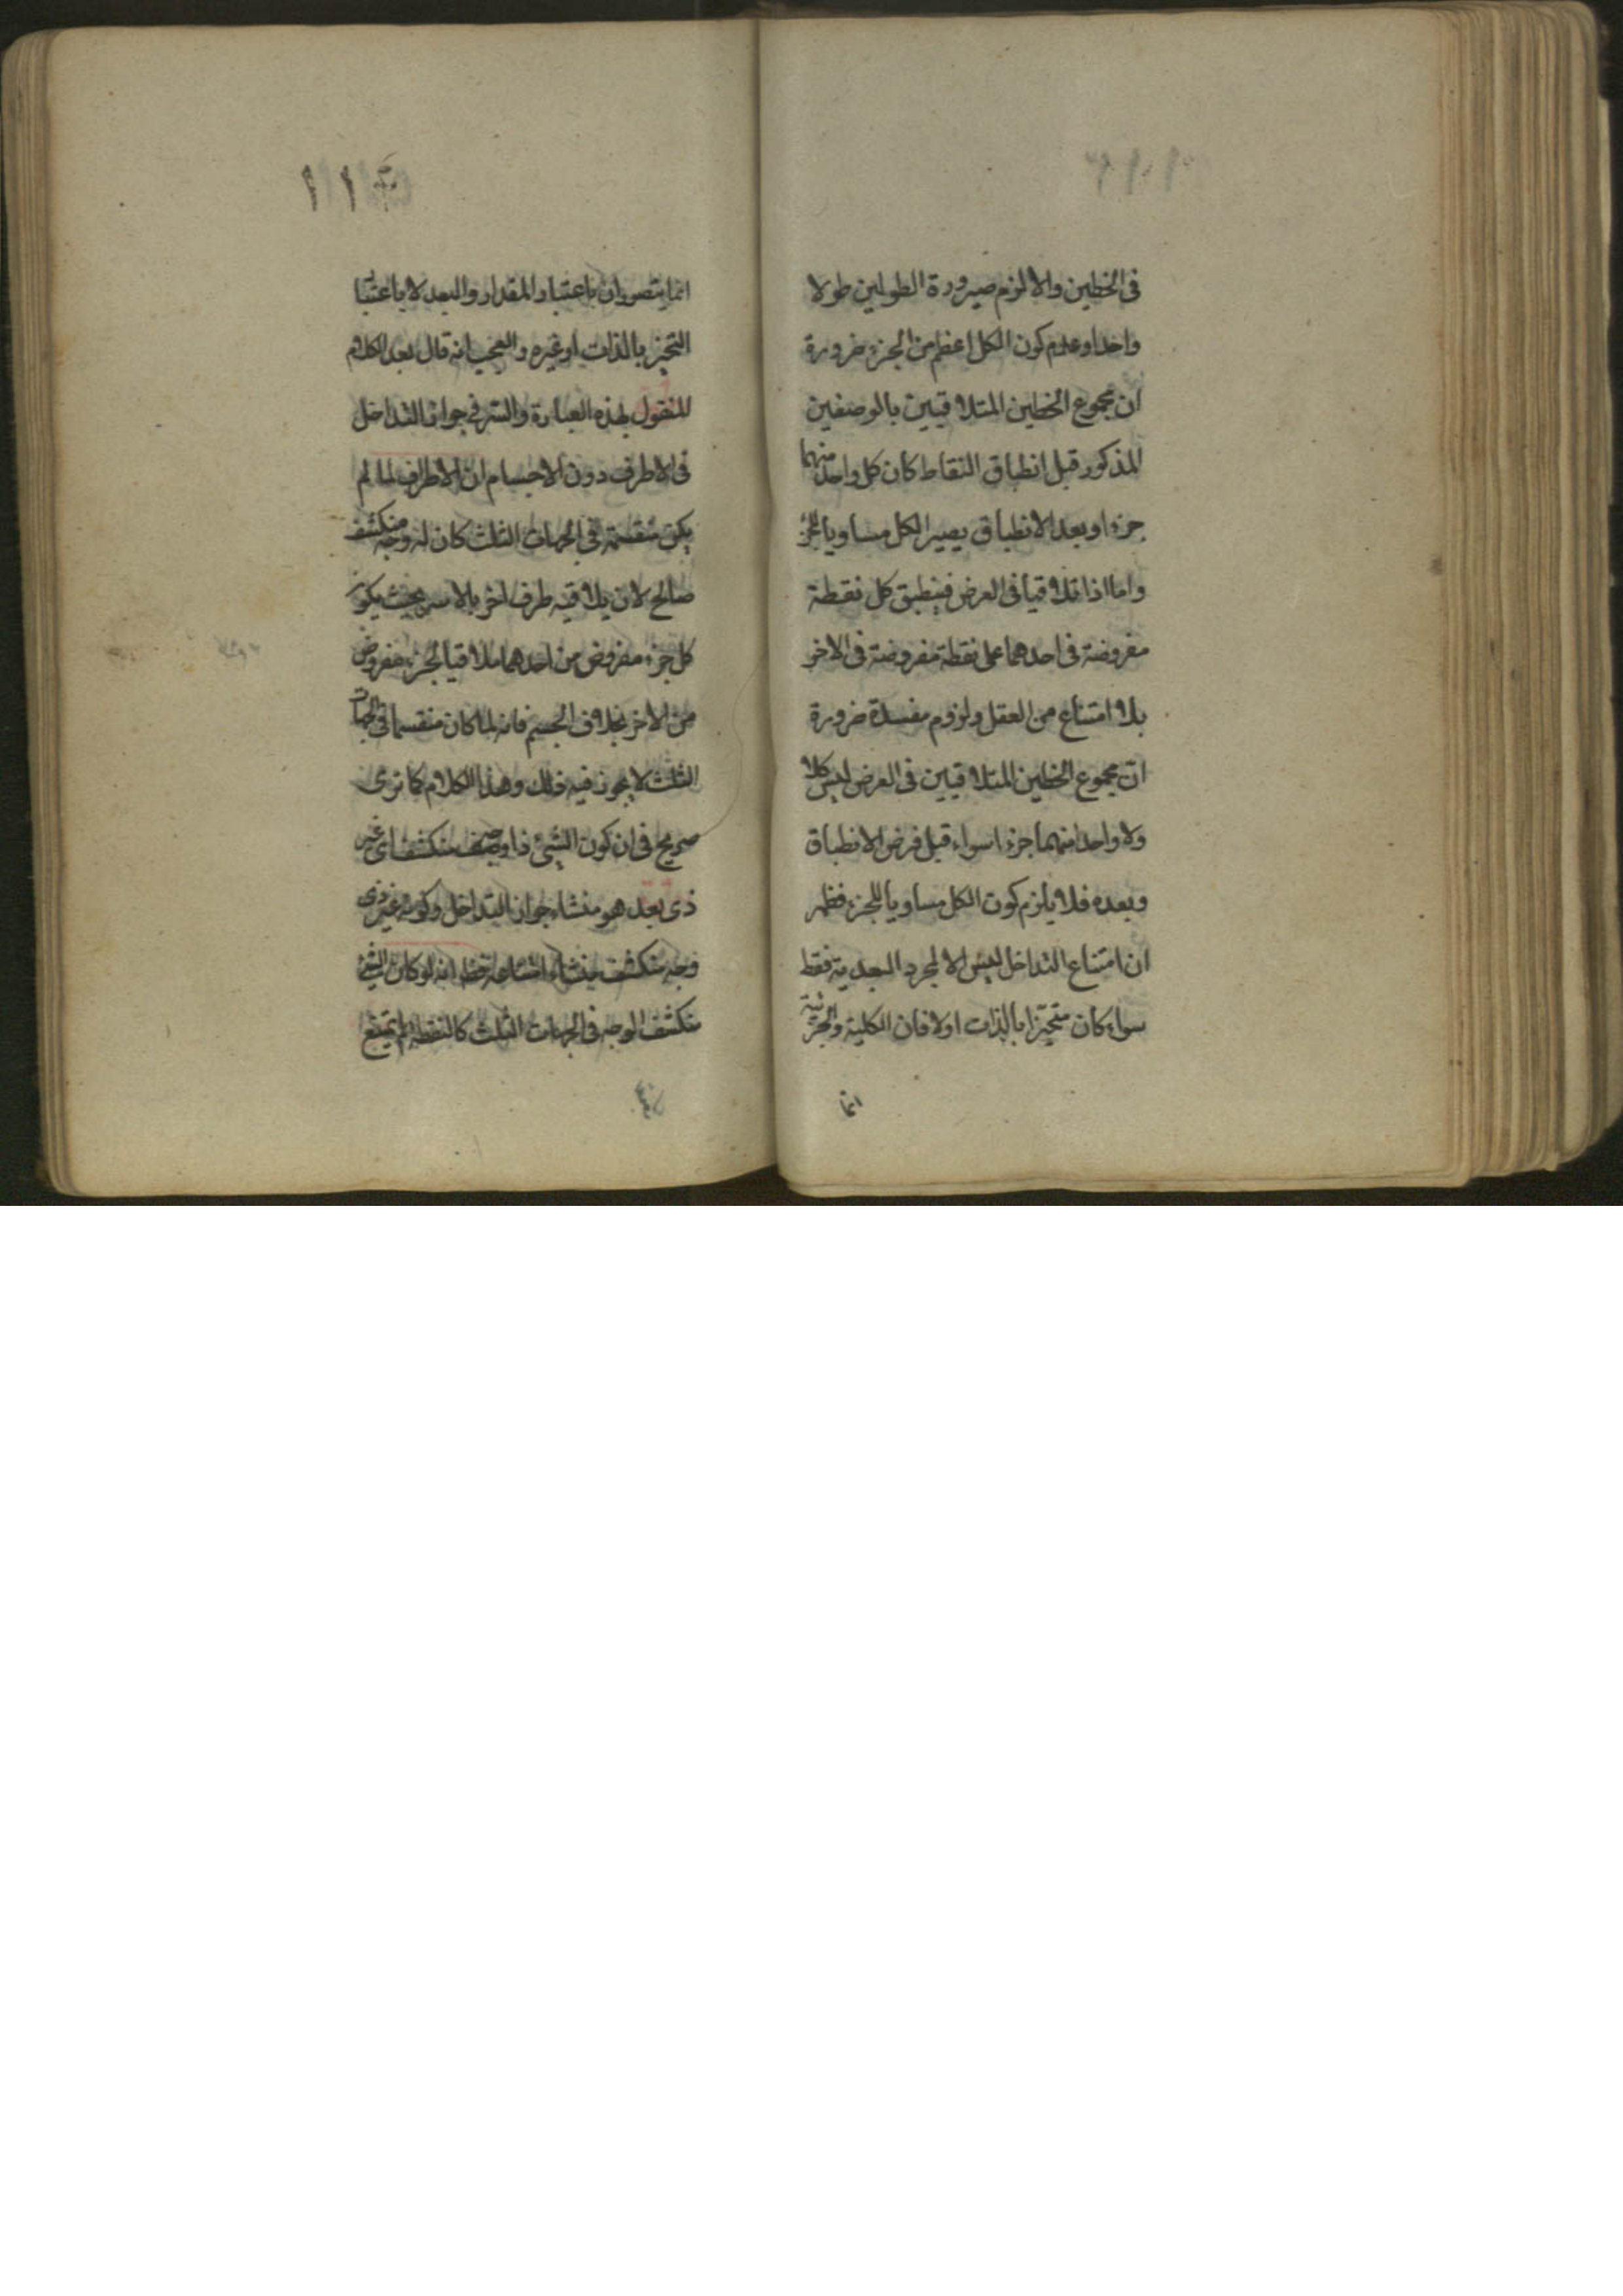 فى الخطين والا لزم صيرورة الطولين طولا
واحدا وعدم كون الكل اعظم من الجزء ضرورة
ان مجموع الخطين المتلاقيين بالوصفين
المذكور قبل انطباق النقاط كان كل واحد منهما
جزءا وبعد الانطباق يصير الكل مساويا للجز
واما اذا تلاقيا فى العرض فينطبق كل نقطة
مفروضة فى احدهما على نقطة مفروضة فى الاخر
بلا امتناع من العقل ولزوم مفسدة ضرورة
ان مجموع الخطين المتلاقيين فى العرض ليس كلا
ولا واحد منهما جزءا سواء قبل فرض الانطباق
وبعده فلا يلزم كون الكل مساويا للجزء فظهر
ان امتناع التداخل ليس الا لمجرد البعدية فقط
سواء كان متحيزا بالذات اولا فان الكلية والجزئية
انما
١١
انما يتصوران باعتبار المقدار والبعد لا باعتبا
التحيز بالذات او غيره والعجب انه قال بعد الكلام
المنقول بهذه العبارة والسر فى جواز التداخل
فى الاطرف دون الاجسام ان الاطراف لما لم
يكن منقسمة فى الجهات الثلث كان له وجه منكشف
صالح لان يلاقيه طرف اخر بالاسر بحيث يكون
كل جزء مفروض من احدهما ملاقيا لجزء مفروض
من الاخر بخلاف الجسم فانه لما كان منقسما فى الجهات
الثلث لا يجوز فيه ذلك وهذا الكلام كما ترى
صريح فى ان كون الشئ ذا وصف منكشف اى غير
ذى بعد هو منشاء جواز التداخل وكونه غير ذى
وجه منكشف منشاء امتناعه انه لو كان الشئ
منكشف الوجه فى الجهات الثلث كالنقطة لم يمتنع